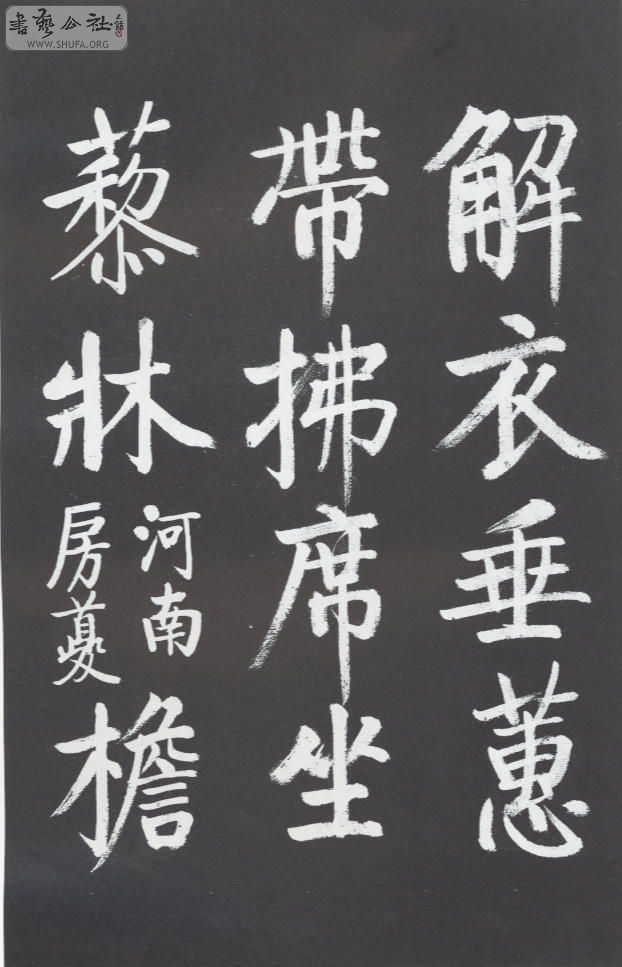 書藝公社
WWW.SHUFA.ORG
解衣垂蕙
帶拂席坐
藜牀
河南
房夔
檐